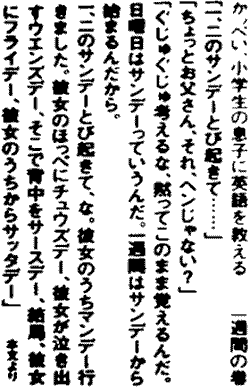 かっぺい、小学生の息子に英語を教える　一週間の巻
「一、二のサンデーとび起きて……」
「ちょっとお父さん、それ、ヘンじゃない?」
「ぐじゅぐじゅ考えるな、黙ってこのまま覚えるんだ。
日曜日はサンデーっていうんだ。一週間はサンデーから
始まるんだから。
一、二のサンデーとび起きて、な。彼女のうちマンデー行
きました。彼女のほっぺにチュウズデー、彼女が泣き出
すウエンズデー、そこで背中をサースデー、結局、彼女
にフライデー、彼女のうちからサッタデー」
本文より